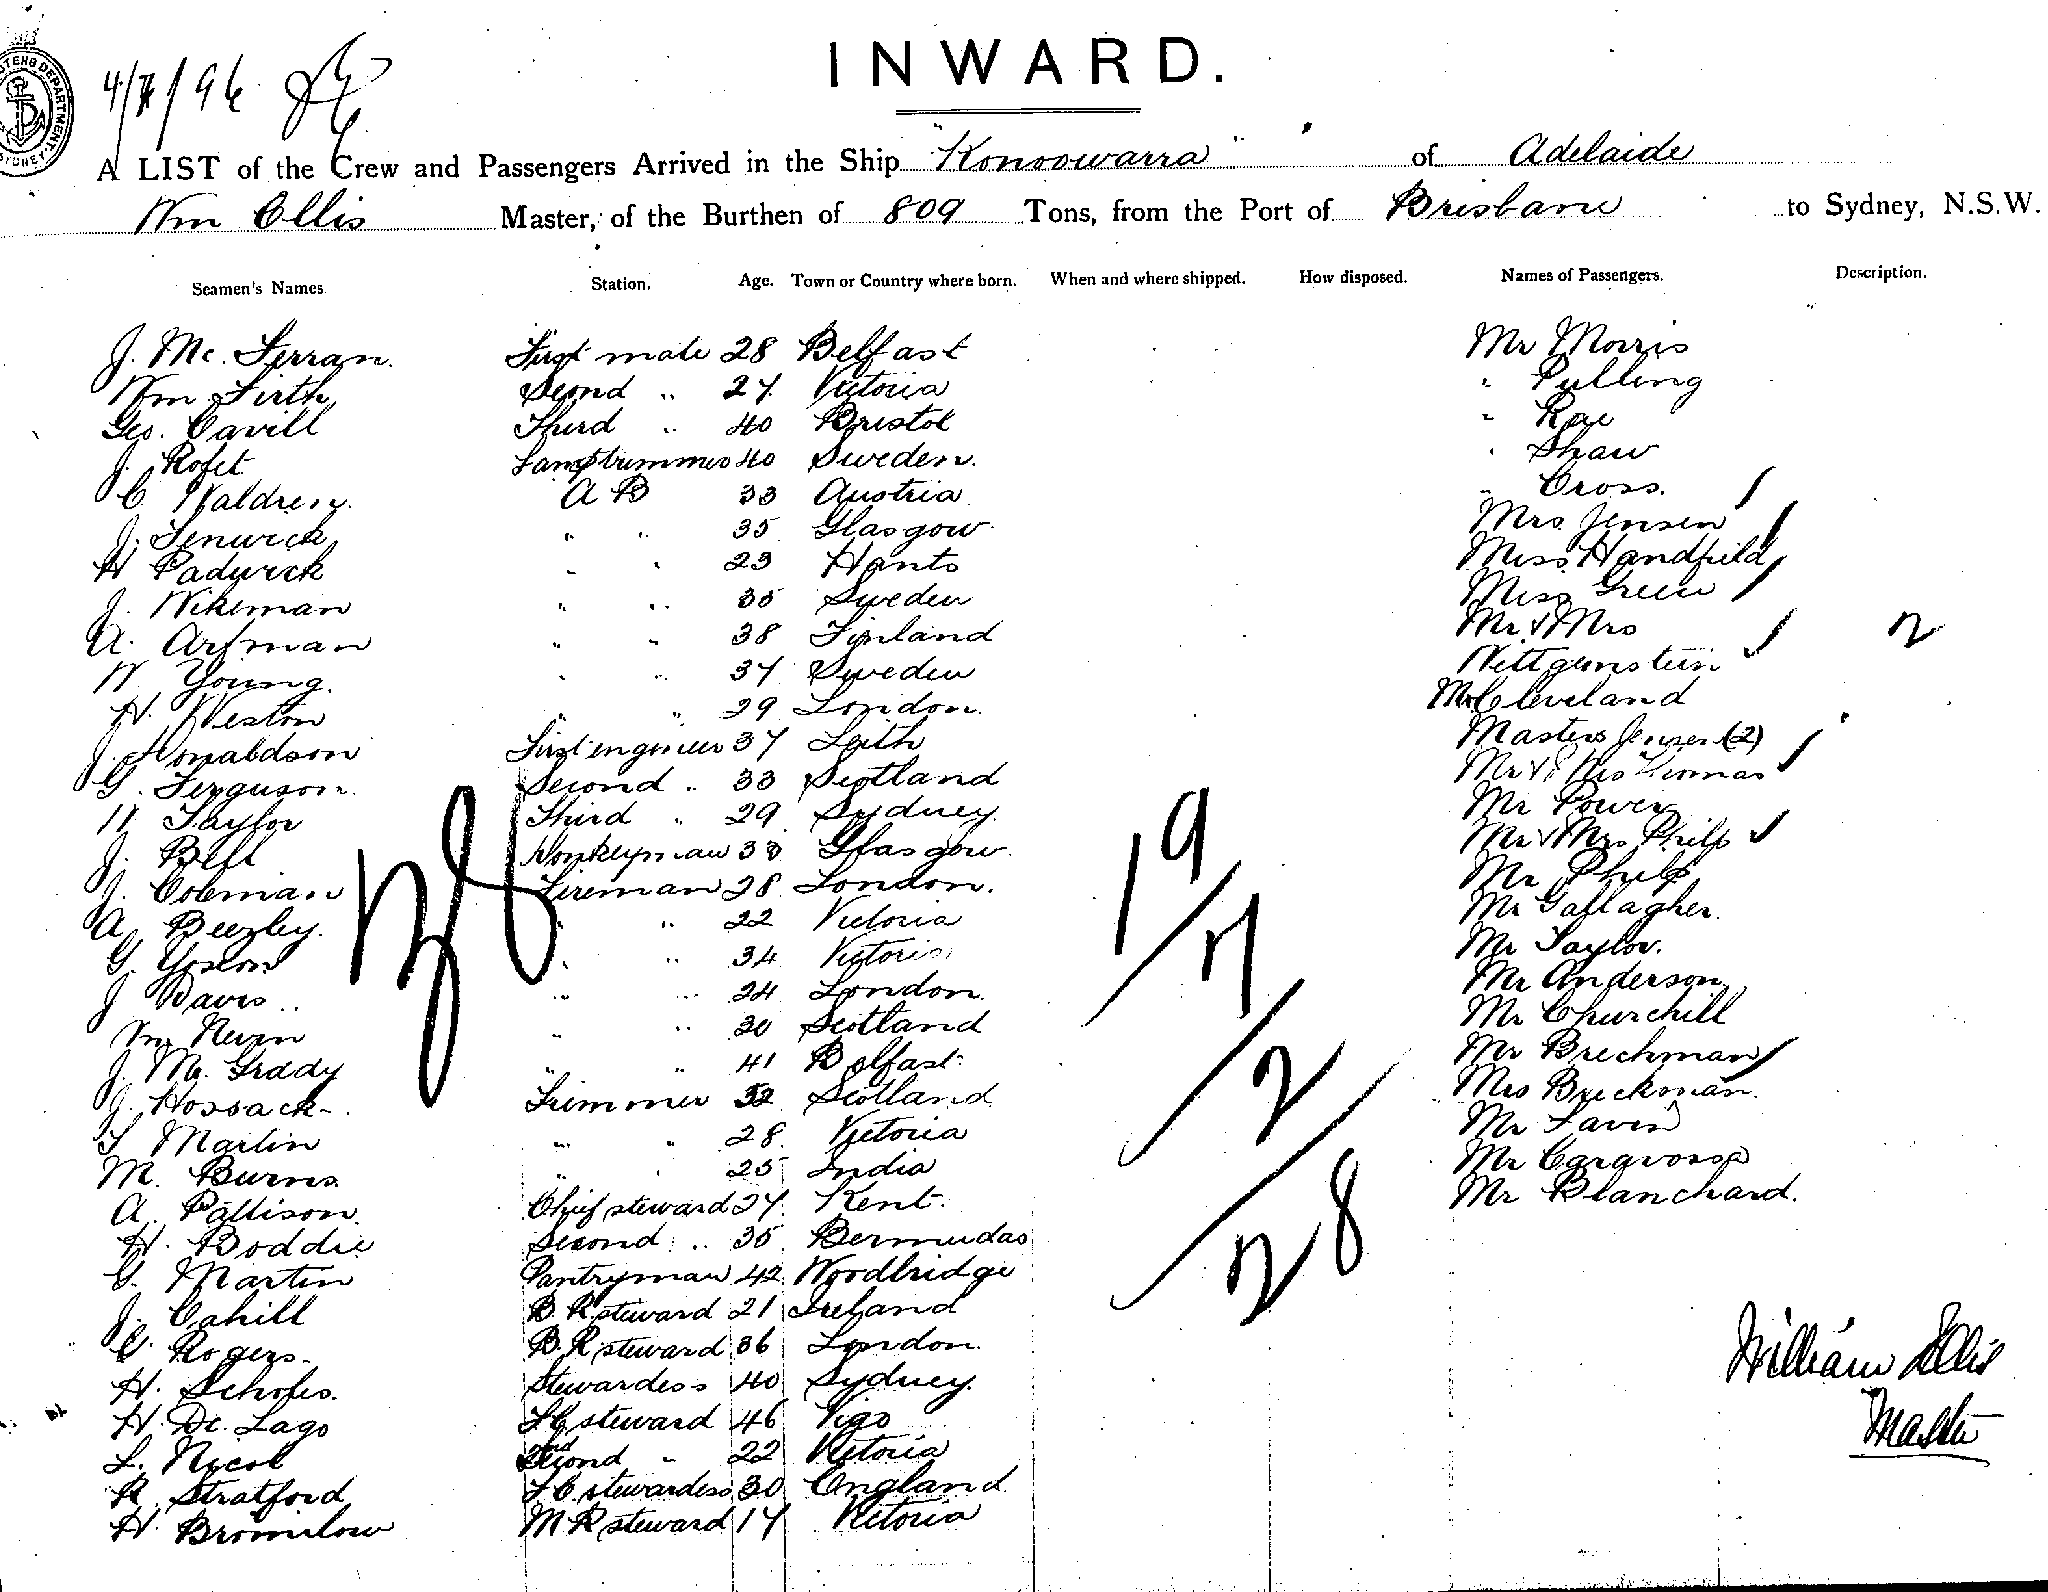 INWARD.
4/7/96
A LIST of the Crew and Passengers Arrived in the Ship "Konoowarra" of Adelaide
Wm Ellis Master, of the Burthen of 809 Tons, from the Port of Brisbane to Sydney, N.S.W.
Seamen's Names. Station. Age. Town or Country where born. When and where shipped. How disposed. Names of Passengers. Description.
J. Mc. Ferran. First mate 28 Belfast Mr Morris
Wm Firth Second " 27 Victoria " Pulling
Geo. Cavill Third " 40 Bristol " Rae
J. Lamptrimmer 40 Sweden. " Shaw
C. Waldren. A B 33 Austria " Cross.
J. Fenwick " " 35 Glasgow Mrs Jensen
H Padwick " " 23 Hants Miss Handfield
J. Wikeman " " 35 Sweden Miss Green
A. Arfman " " 38 Finland Mr & Mrs 2
W Young. " " 37 Sweden Wittgenstein
H. Weston " " 29 London. Mr Cleveland
J. Donaldson First engineer 37 Leith Masters Jensen (2)
G. Ferguson. Second " 33 Scotland Mr & Mrs Thomas
W Taylor Third " 29 Sydney. Mr Power
J. Bell Donkeyman 33 Glasgow. Mr & Mrs Philp
J. Coleman Fireman 28 London. Mr Philp
A. Beezley. " " 22 Victoria Mr Gallagher.
G. " " 34 Victoria Mr Taylor.
J Davis " " 24 London. Mr Anderson
Wm Nevin " " 30 Scotland Mr Churchill
J. Mc. Grady " " 41 Belfast Mr Breckman
J. Hossack Trimmer 32 Scotland Mrs Breckman.
T Martin " " 28 Victoria Mr
M. Burns. " " 25 India Mr
A. Pattison. Chief steward 27 Kent. Mr Blanchard.
H. Boddie Second " 35 Bermudas
G. Martin Pantryman 42 Woodbridge
J. Cahill B R steward 21 Ireland
C. Rogers. B. R steward 36 London
H. Scholes. Stewardess 40 Sydney.
H. De. Lago F C steward 46 Vigo
L. Nicol Second " 22 Victoria
R. Stratford F C stewardess 30 England
H. Bromilow M R steward 17 Victoria
19/7/2/28
William Ellis
Master